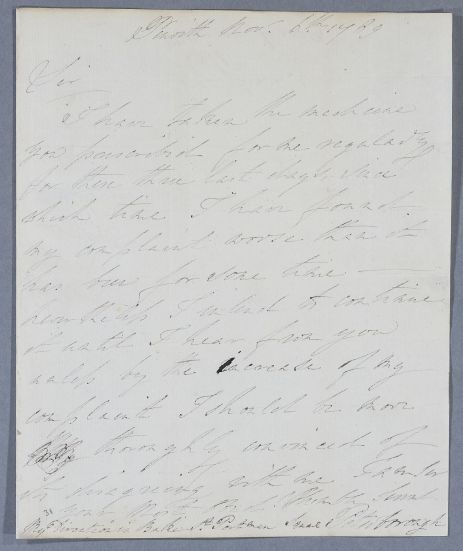 Penrith Nov. 6th 1789
Sir
I have taken the medicine
you perscribed for me regularly
for these three last days, since
which time I have found
my complaint worse than it
has been for some time —
nevertheless I intend to continue
it until I hear from you
unless by the increase of my
complaint I should be more
thoroughly convinced of
its disagreeing with me I am Sir
your Most Obd. Humble Servt
My Direction is Baker St Portman